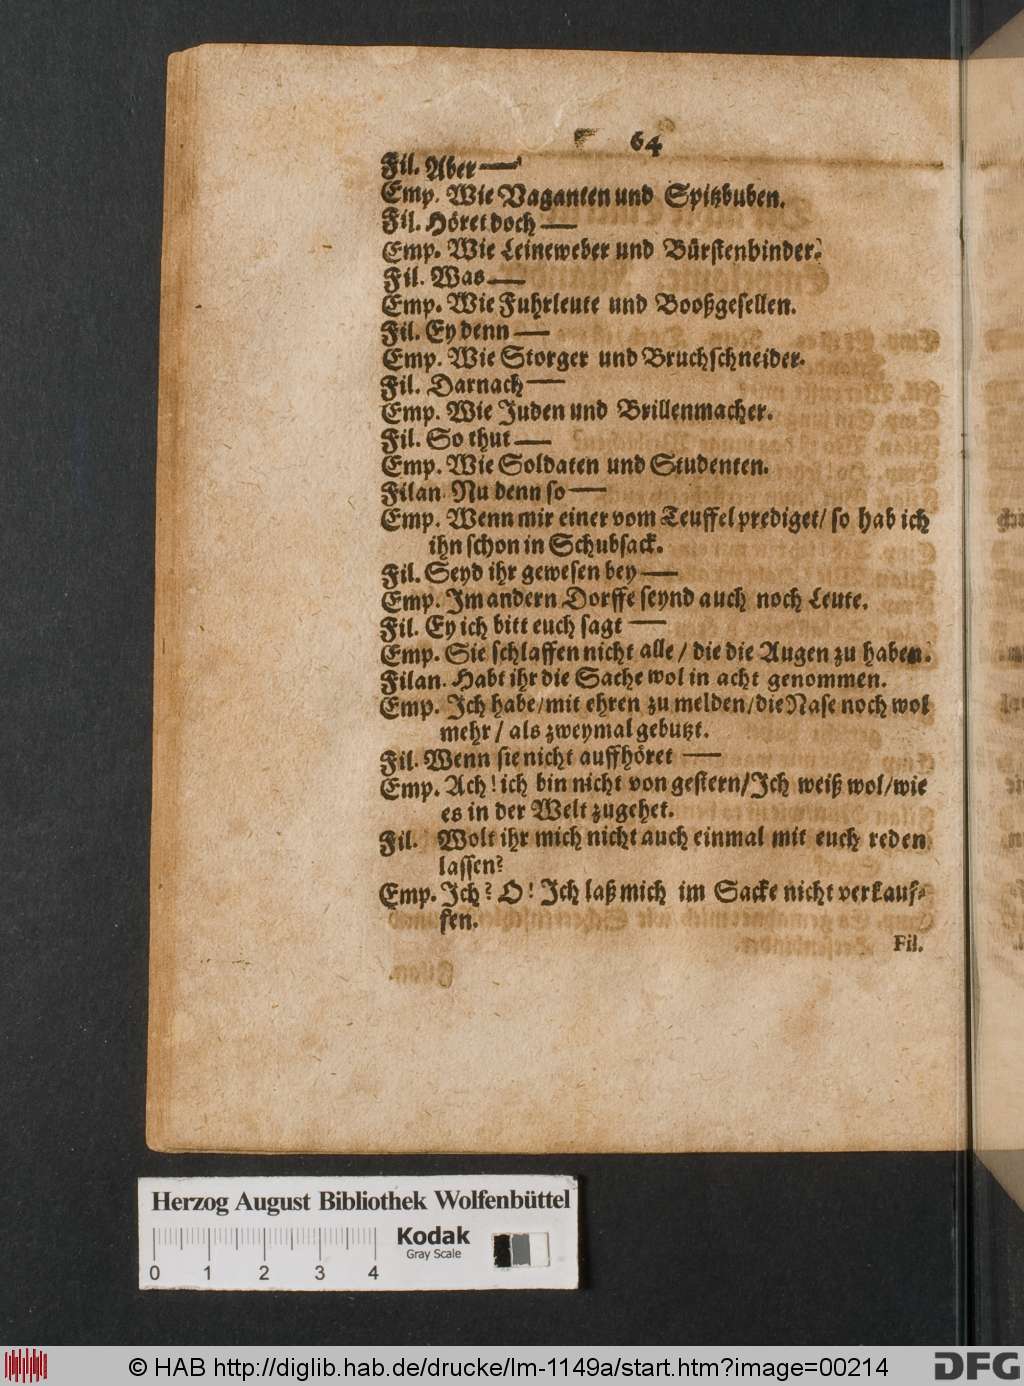 64
Fil. Aber —
Emp. Wie Vaganten und Spitzbuben.
Fil. Höret doch —
Emp. Wie Leineweber und Bürstenbinder.
Fil. Was —
Emp. Wie Fuhrleute und Booßgesellen.
Fil. Ey denn —
Emp. Wie Storger und Bruchschneider.
Fil. Darnach —
Emp. Wie Juden und Brillenmacher.
Fil. So thut —
Emp. Wie Soldaten und Studenten.
Filan. Nu denn so —
Emp. Wenn mir einer vom Teuffel prediget/ so hab ich
ihn schon in Schubsack.
Fil. Seyd ihr gewesen bey —
Emp. Im andern Dorffe seynd auch noch Leute.
Fil. Ey ich bitt euch sagt —
Emp. Sie schlaffen nicht alle / die die Augen zu haben.
Filan. Habt ihr die Sache wol in acht genommen.
Emp. Ich habe/mit ehren zu melden/die Nase noch wol
mehr / als zweymal gebutzt.
Fil. Wenn sie nicht auffhöret —
Emp. Ach! ich bin nicht von gestern/Ich weiß wol/wie
es in der Welt zugehet.
Fil. Wolt ihr mich nicht auch einmal mit euch reden
lassen?
Emp. Ich? O! Ich laß mich im Sacke nicht verkauf-
fen.
Fil.
Herzog August Bibliothek Wolfenbüttel
Kodak
Gray Scale
0 1 2 3 4
© HAB http://diglib.hab.de/drucke/lm-1149a/start.htm?image=00214
DFG